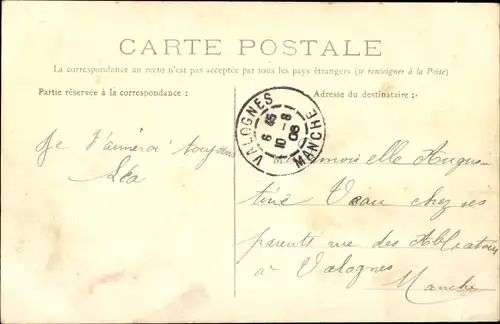 CARTE POSTALE
La correspondance au recto n'est pas acceptée par tous les pays étrangers (se renseigner à la Poste)
Partie réservée à la correspondance :
Adresse du destinataire :
VALOGNES
6 45
10 - 8
08
MANCHE
Je t'aimerai toujours
Léa
Mademoiselle Augus-
tine chez ses
parents rue des
à Valognes
Manche